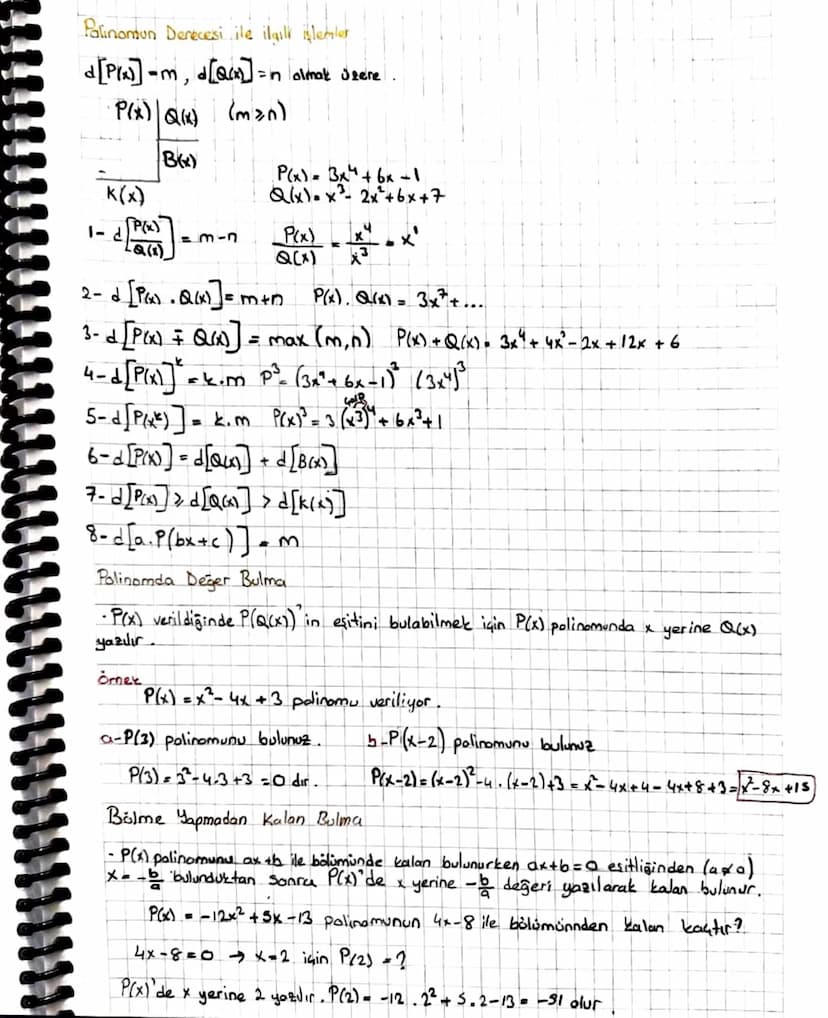 Polinomun Derecesi ile ilgili işlemler
d[P(x)] = m, d[Q(x)] = n olmak üzere.
P(x) | Q(x) (m ≥ n)
B(x)
-
K(x)
P(x) = 3x⁴ + 6x - 1
Q(x) = x³ - 2x² + 6x + 7
1- d[P(x)/Q(x)] = m-n P(x)/Q(x) = x⁴/x³ = x¹
2- d[P(x) . Q(x)] = m+n P(x). Q(x) = 3x⁷ + ...
3- d[P(x) ∓ Q(x)] = max (m,n) P(x) + Q(x) = 3x⁴ + 4x³ - 2x + 12x + 6
4- d[P(x)]ᵏ = k.m P³ = (3x⁴ + 6x - 1)³ (3x⁴)³
5- d[P(xᵏ)] = k.m P(x)³ = 3(x³)⁴ + 6x³ + 1
6- d[P(x)] = d[Q(x)] + d[B(x)]
7- d[P(x)] ≥ d[Q(x)] > d[K(x)]
8- d[a.P(bx+c)] = m
Polinomda Değer Bulma
· P(x) verildiğinde P(Q(x))'in eşitini bulabilmek için P(x) polinomunda x yerine Q(x)
yazılır.
örnek
P(x) = x² - 4x + 3 polinomu veriliyor.
a- P(3) polinomunu bulunuz. b- P(x-2) polinomunu bulunuz
P(3) = 3² - 4.3 + 3 = 0 dır. P(x-2) = (x-2)² - 4.(x-2) + 3 = x² - 4x + 4 - 4x + 8 + 3 = x² - 8x + 15
Bölme Yapmadan Kalan Bulma
- P(x) polinomunu ax+b ile bölümünde kalan bulunurken ax+b=0 eşitliğinden (a≠0)
x = -b/a bulunduktan sonra P(x)'de x yerine -b/a değeri yazılarak kalan bulunur.
P(x) = -12x² + 5x - 13 polinomunun 4x-8 ile bölümünnden kalan kaçtır?
4x - 8 = 0 → x = 2 için P(2) = ?
P(x)'de x yerine 2 yazılır. P(2) = -12 . 2² + 5.2 - 13 = -51 olur.